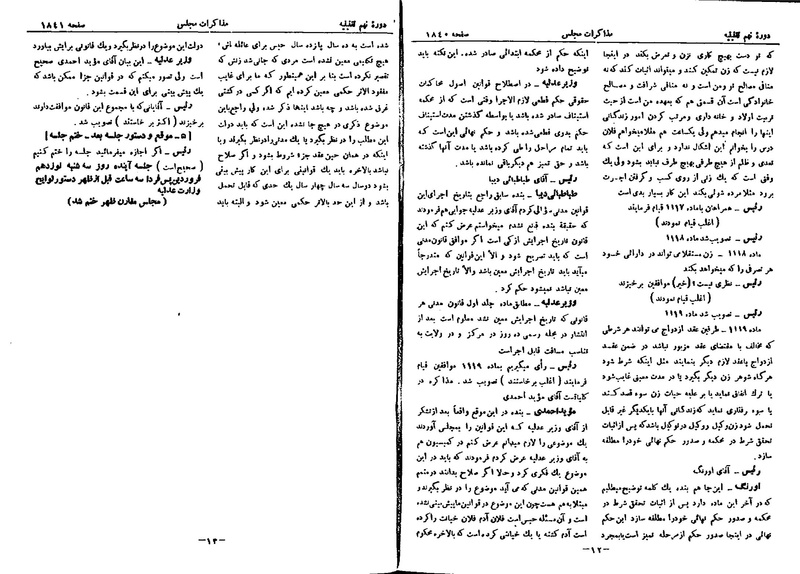 دورهٔ نهم تقنینیه
مذاکرات مجلس
صفحه ۱۸۴۰
که تو دست بهیچ کاری نزن و تعرض بکند در اینجا
لازم نیست که زن تمکین کند و میتواند اثبات کند که نه
منافی مصالح تو ومن است و نه منافی شرافت و مصالح
خانوادگی است آن قسمتی هم که بعهده من است از حیث
تربیت اولاد و خانه داری و مرتب کردن امور زندگانی
اینها را انجام میدهم ولی یکساعت هم مثلا میخواهم فلان
درس را بخوانم این اشکال ندارد و برای این است که
تعدی و ظلم از هیچ طرفی بهیچ طرف نیاید بشود ولی یک
وقتی است که یک زنی از روی کسب و گرفتن اجرت
برود مثلا مرده شوئی بکند این کار بسیار بدی است
رئیس – همراهان باماده ۱۱۱۷ قیام فرمایند
(اغلب قیام نمودند)
رئیس – تصویب شد ماده ۱۱۱۸
ماده ۱۱۱۸ – زن مستقلا می تواند در دارائی خود
هر تصرفی را که میخواهد بکند
رئیس – نظری نیست؟ (خیر) موافقین برخیزند
(اغلب قیام نمودند)
رئیس – تصویب شد ماده ۱۱۱۹
ماده ۱۱۱۹ – طرفین عقد ازدواج می توانند هر شرطی
که مخالف با مقتضای عقد مزبور نباشد در ضمن عقد
ازدواج یاعقد لازم دیگر بنمایند مثل اینکه شرط شود
هرگاه شوهر زن دیگر بگیرد یا در مدت معینی غایب شود
یا ترک انفاق نماید یا بر علیه حیات زن سوء قصد کند
یا سوء رفتاری نماید که زندگانی آنها بایکدیگر غیر قابل
تحمل شود زن وکیل و وکیل در توکیل باشد که پس از اثبات
تحقق شرط در محکمه و صدور حکم نهائی خود را مطلقه
سازد.
رئیس – آقای اورنگ
اورنگ – این جا هم بنده یک کلمه توضیح میطلبم
که در آخر این ماده دارد پس از اثبات تحقق شرط در
محکمه و صدور حکم نهائی خود را مطلقه سازد این حکم
نهائی در اینجا صدور حکم از مرحله تمیز است یا بمجرد
اینکه حکم از محکمه ابتدائی صادر شده. این نکته باید
توضیح داده شود
وزیر عدلیه – در اصطلاح قوانین اصول محاکمات
حقوقی حکم قطعی لازم الاجرا وقتی است که از محکمه
استیناف صادر شده باشد یا بواسطه گذشتن مدت استیناف
حکم بدوی قطعی شده باشد و حکم نهائی این است که
باید تمام مراحل را طی کرده باشد یا مدت آنها گذشته
باشد و حق تمیز هم دیگر باقی نمانده باشد.
رئیس – آقای طباطبائی دیبا
طباطبائی دیبا – بنده سابق راجع بتاریخ اجرای این
قوانین مدنی سؤالی کردم آقای وزیر عدلیه جوابی هم فرمودند
که حقیقة بنده قانع نشدم میخواستم عرض کنم که این
قانون تاریخ اجرایش از کی است اگر موافق قانون مدنی
است که باید تصریح شود و الا این قوانین که مندرجاً
میآید باید تاریخ اجرایش معین باشد والا تاریخ اجرایش
معین نباشد نمیشود حکم کرد.
وزیر عدلیه – مطابق ماده جلد اول قانون مدنی هر
قانونی که تاریخ اجرایش معین نشد معلوم است بعد از
انتشار در مجله رسمی ده روز در مرکز و در ولایت به
تناسب مسافت قابل اجرا است
رئیس – رأی میگیریم بماده ۱۱۱۹ موافقین قیام
فرمایند (اغلب برخاستند) تصویب شد. مذاکره در
کلیاتست آقای مؤید احمدی
مؤید احمدی – بنده در این موقع واقعاً بعد از تشکر
از آقای وزیر عدلیه که این قوانین را بمجلس آوردند
یک موضوعی را لازم میدانم عرض کنم در کمیسیون هم
به آقای وزیر عدلیه عرض کردم فرمودند که باید در این
موضوع یک فکری کرد و حالا اگر صلاح بدانند در متمم
همین قوانین مدنی که می آید موضوع را در نظر بگیرند و
مبتلا به هم هست چون این موضوع در قوانین ما پیش بینی نشده
و آن مسئله حبس است فلان آدم فلان خیانت را کرده
است آدم کشته یا یک خیانتی کرده است که بالاخره محکوم
– ۱۲ –
دورهٔ نهم تقنینیه
مذاکرات مجلس
صفحه ۱۸۴۱
شده است به ده سال یازده سال حبس برای عائله اش
هیچ تکلیفی معین نشده است مردی که جانی شد زنش که
تقصیر نکرده است بنا بر این همینطور که ما برای غایب
مفقود الاثر حکمی معین کرده ایم که اگر کسی در کشتی
غرق شده باشد و چه باشد اینها ذکر شده ولی راجع باین
موضوع ذکری در هیچ جا نشده این است که باید دولت
این مطلب را در نظر بگیرد یا یک موادی را در نظر بگیرند و یا
اینکه در همان حین عقد جزء شروط بشود و اگر صلاح
نباشد بالاخره باید یک قوانینی برای این کار پیش بینی
بشود دو سال سه سال چهار سال یک حدی که قابل تحمل
باشد و از این حد بالاتر حکمی معین شود و البته باید
دولت این موضوع را در نظر بگیرد ویک قانونی برایش بیاورد
وزیر عدلیه – این بیان آقای مؤید احمدی صحیح
است ولی تصور میکنم که در قوانین جزا ممکن باشد که
یک پیش بینی برای این قسمت بشود.
رئیس – آقایانی که با مجموع این قانون موافقت دارند
برخیزند (اکثر بر خاستند) تصویب شد.
[ ۵ – موقع و دستور جلسه بعد – ختم جلسه ]
رئیس – اگر اجازه میفرمائید جلسه را ختم کنیم
(صحیح است) جلسه آینده روز سه شنبه نوزدهم
فروردین پس فردا سه ساعت قبل از ظهر دستور لوایح
وزارت عدلیه
(مجلس مقارن ظهر ختم شد)
– ۱۳ –